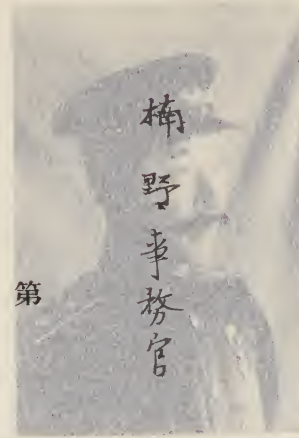 楠野事務官
第